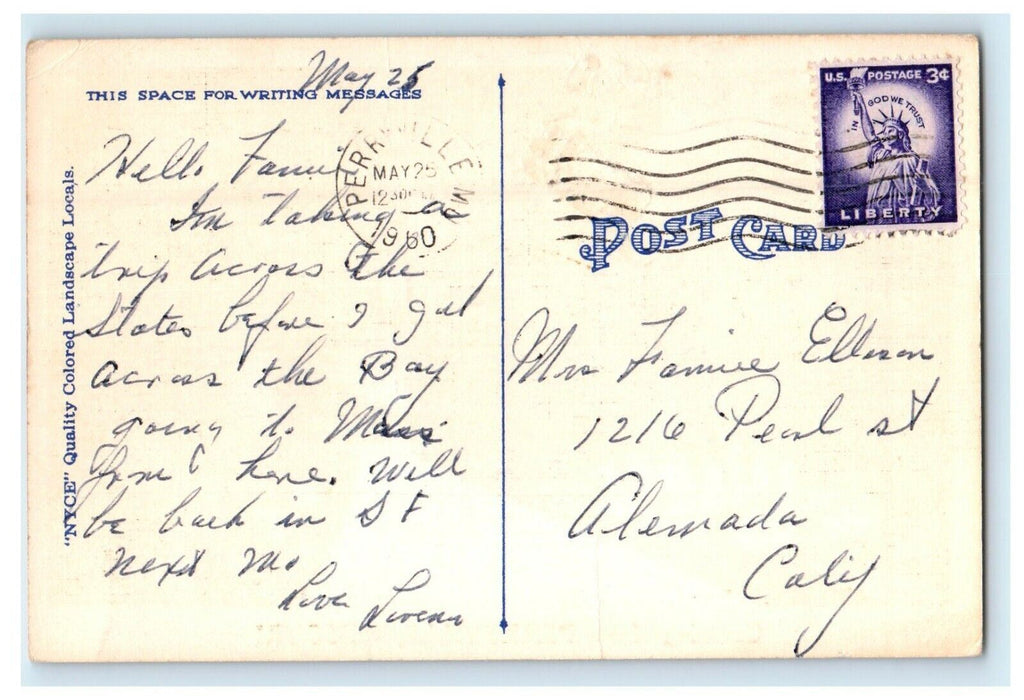 May 25
THIS SPACE FOR WRITING MESSAGES
Hello Fannie
Im taking a
trip across the
States before I get
across the Bay
going to Mass
from here. Will
be back in S F
next Mo
Love Lorena
"NYCE" Quality Colored Landscape Locals.
PERRYVILLE MD
MAY 25
1230 PM
1960
U.S. POSTAGE 3¢
IN GOD WE TRUST
LIBERTY
POST CARD
Mrs Fannie Ellerson
1216 Pearl st
Alemada
Calif